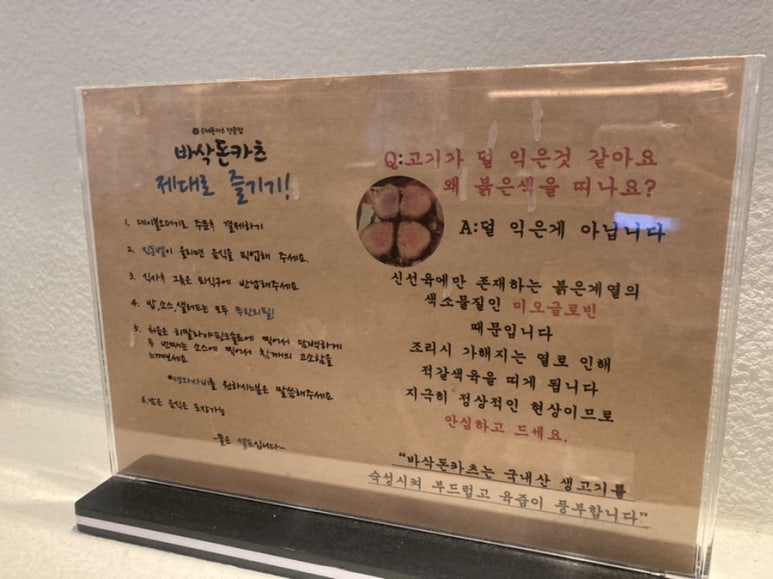 수제돈까스 전문점
바삭돈카츠
제대로 즐기기!
1. 테이블오더기로 주문후 결제하기
2. 진동벨이 울리면 음식을 픽업해 주세요.
3. 식사후 그릇은 퇴식구에 반납해주세요
4. 밥,소스,샐러드는 모두 무한리필!
5. 처음은 히말라야핑크솔트에 찍어서 담백하게
두 번째는 소스에 찍어서 참깨의 고소함을
느껴보세요
*생와사비를 원하시는분은 말씀해주세요
6.남은 음식은 포장가능
-물은 셀프입니다-
Q:고기가 덜 익은것 같아요
왜 붉은색을 띠나요?
A:덜 익은게 아닙니다
신선육에만 존재하는 붉은계열의
색소물질인 미오글로빈
때문입니다
조리시 가해지는 열로 인해
적갈색육을 띠게 됩니다
지극히 정상적인 현상이므로
안심하고 드세요.
"바삭돈카츠는 국내산 생고기를
숙성시켜 부드럽고 육즙이 풍부합니다"